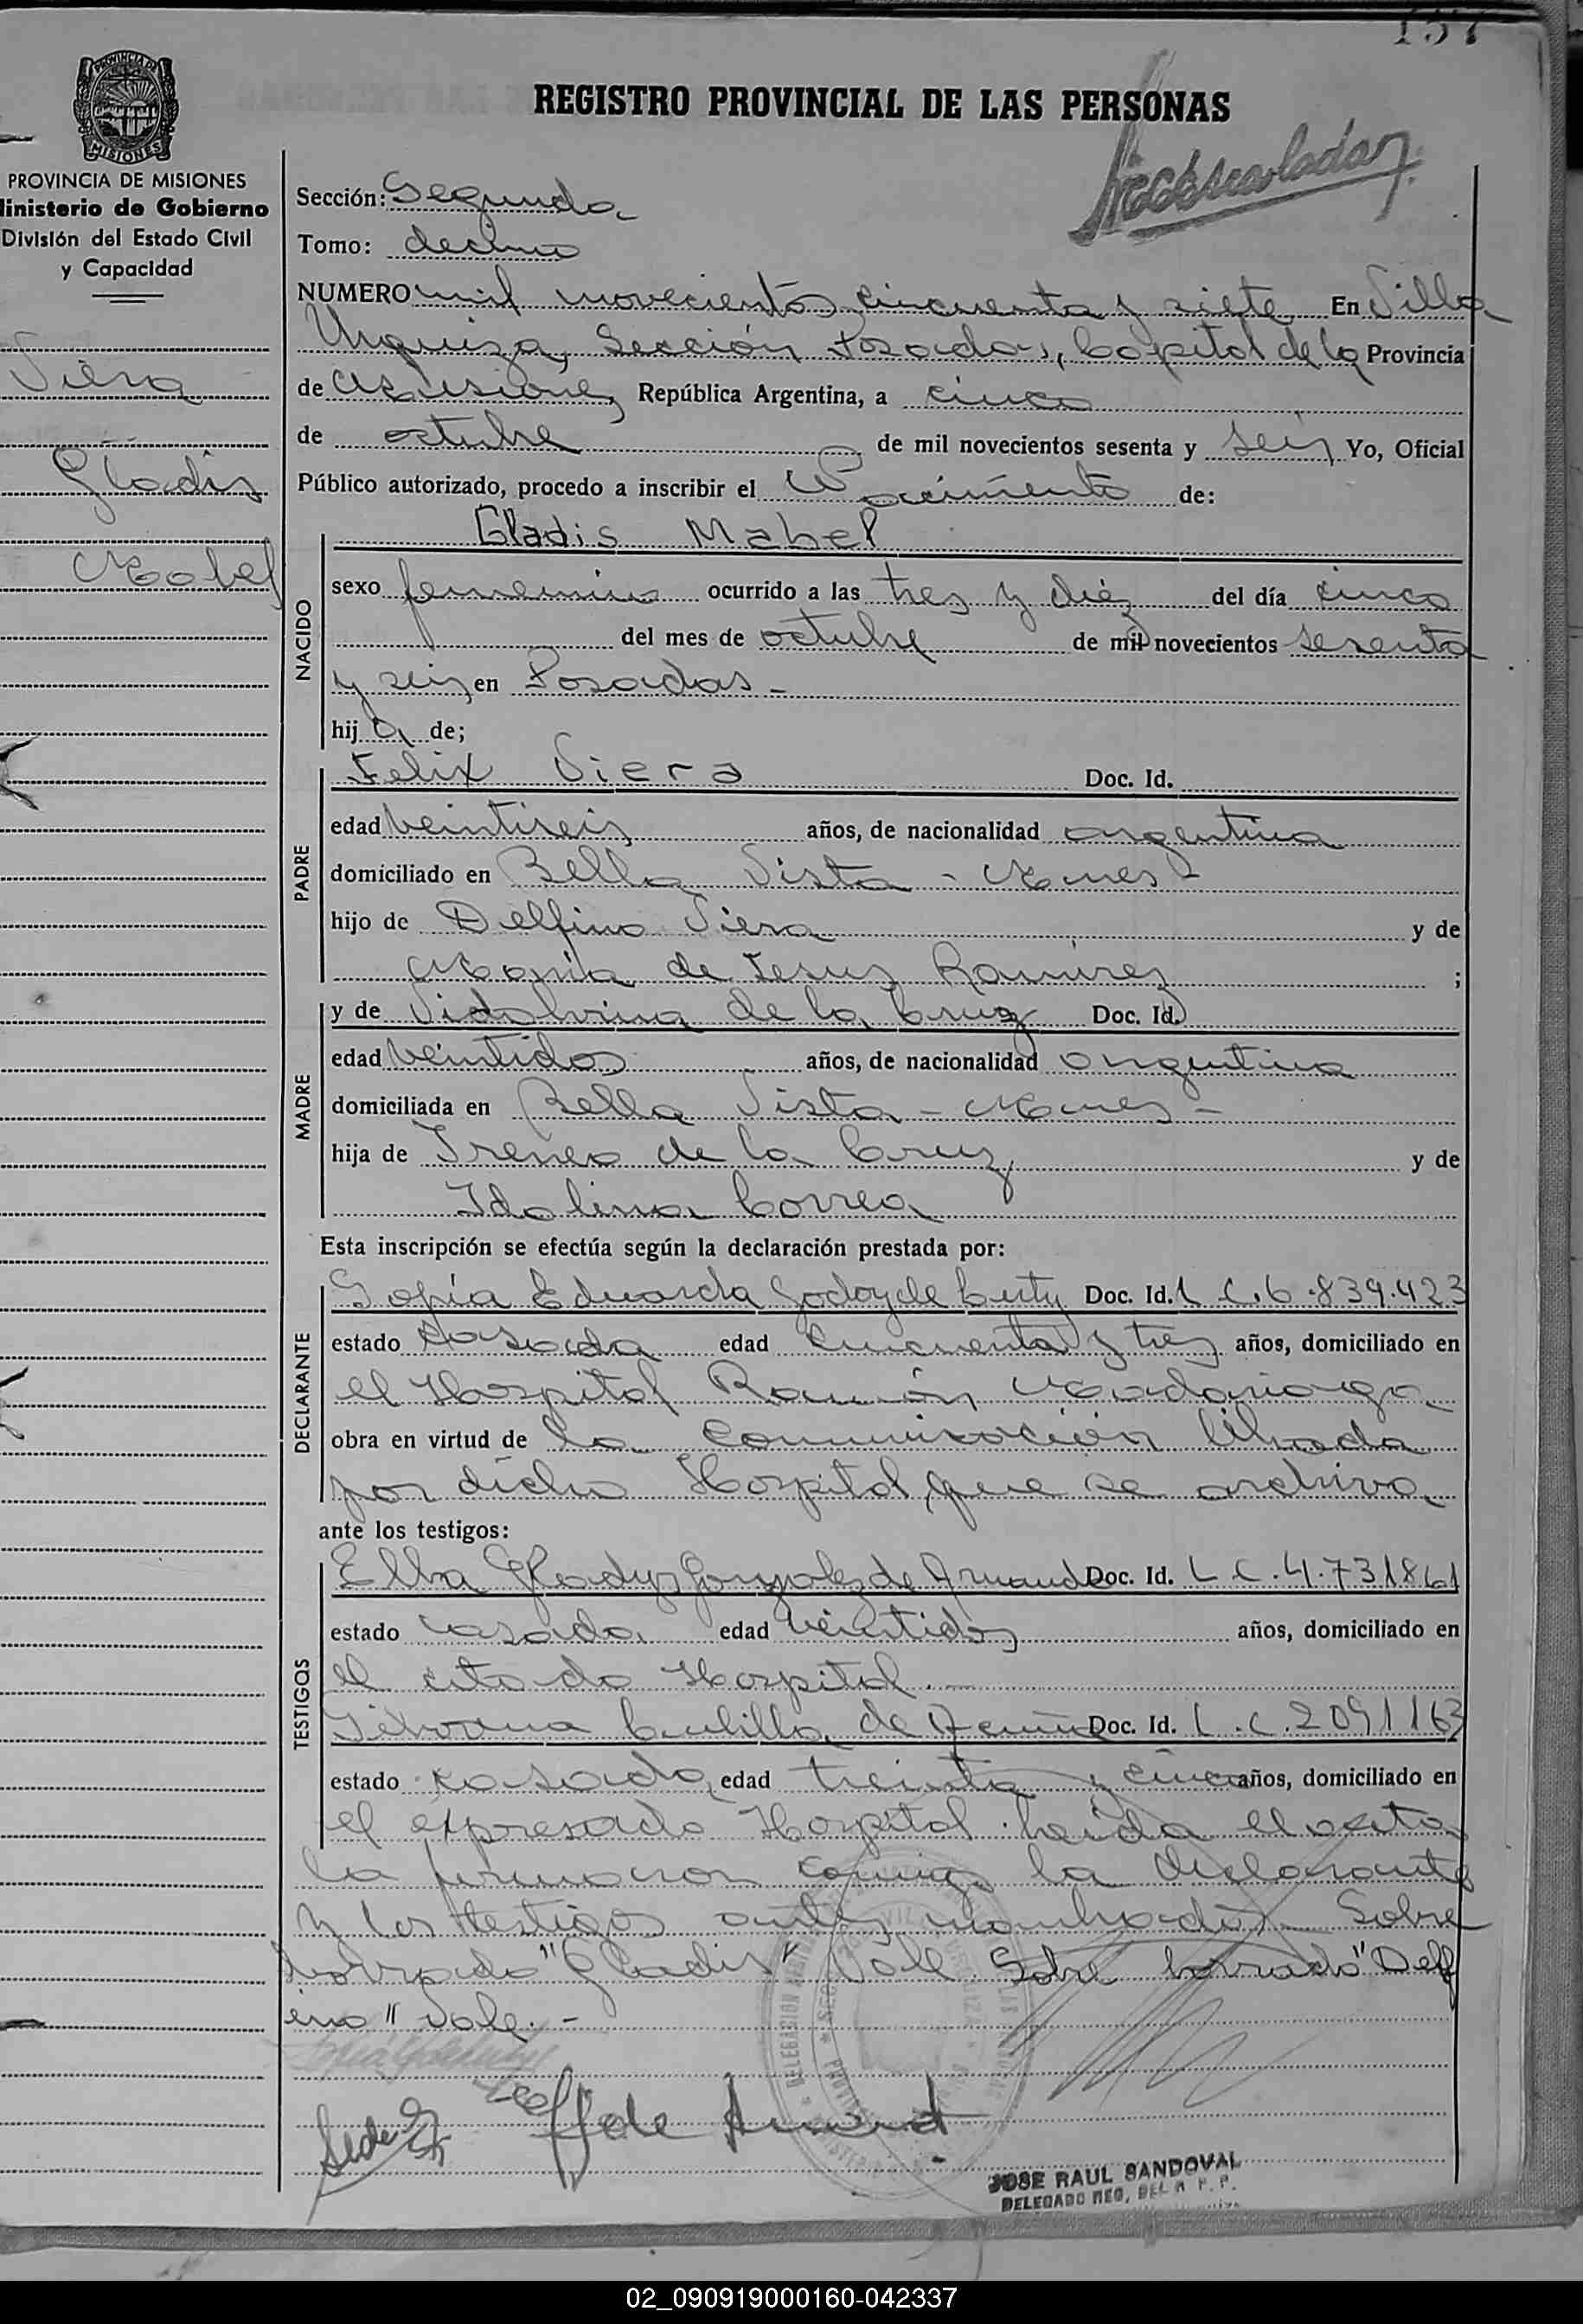 157
PROVINCIA DE MISIONES
REGISTRO PROVINCIAL DE LAS PERSONAS
PROVINCIA DE MISIONES
Ministerio de Gobierno
División del Estado Civil
y Capacidad
Viera
Gladis
Mabel
Sección: Segunda
Tomo: decimo
NUMERO mil novecientos cincuenta y siete En Villa
Urquiza, Sección Posadas, Capital de la Provincia
de Misiones República Argentina, a cinco
de octubre de mil novecientos sesenta y seis Yo, Oficial
Público autorizado, procedo a inscribir el Nacimiento de:
NACIDO
Gladis Mabel
sexo femenino ocurrido a las tres y diéz del día cinco
del mes de octubre de mil novecientos sesenta
y seis en Posadas -
hij a de;
PADRE
Felix Viera Doc. Id.
edad veintiseis años, de nacionalidad argentina
domiciliado en Bella Vista - Mnes -
hijo de Delfino Viera y de
Maria de Jesus Ramirez ;
MADRE
y de Vidalvina de la Cruz Doc. Id.
edad veintidos años, de nacionalidad argentina
domiciliada en Bella Vista - Mnes -
hija de Ireneo de la Cruz y de
Idalina Correa
Esta inscripción se efectúa según la declaración prestada por:
DECLARANTE
Sofía Eduarda Godoy de Doc. Id. L C. 6.839.423
estado casada edad cincuenta y tres años, domiciliado en
el Hospital Ramón Madariaga
obra en virtud de la comunicación librada
por dicho Hospital que se archiva
ante los testigos:
TESTIGOS
Elba Gladys Gonzalez de Doc. Id. L. C. 4.731861
estado casada edad veintidos años, domiciliado en
el citado Hospital.-
de Doc. Id. L. C. 2091163
estado casada edad treinta y cinco años, domiciliado en
el expresado Hospital. leida el acta
la firmaron conmigo la declarante
y los testigos antes nombrados. Sobre
borrado "Gladis" Vale Sobre borrado "Delf
ino" Vale. -
JOSE RAUL SANDOVAL
DELEGADO REG. DEL R. P. P.
02_090919000160-042337